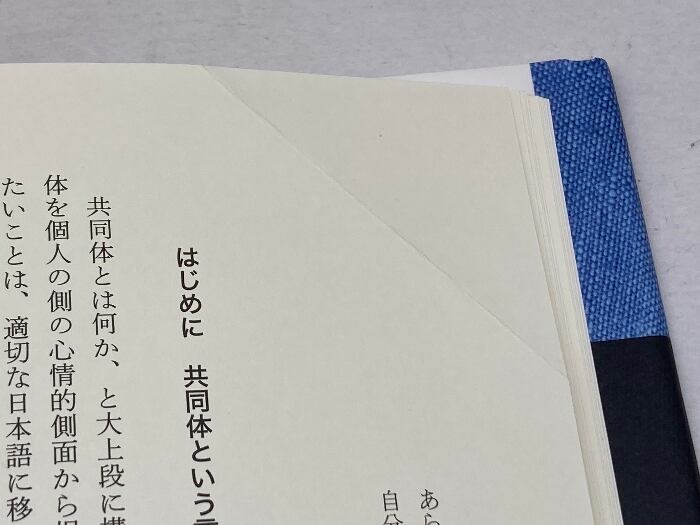 あら
自分
はじめに 共同体という
共同体とは何か、と大上段に
体を個人の側の心情的側面から
たいことは、適切な日本語に移